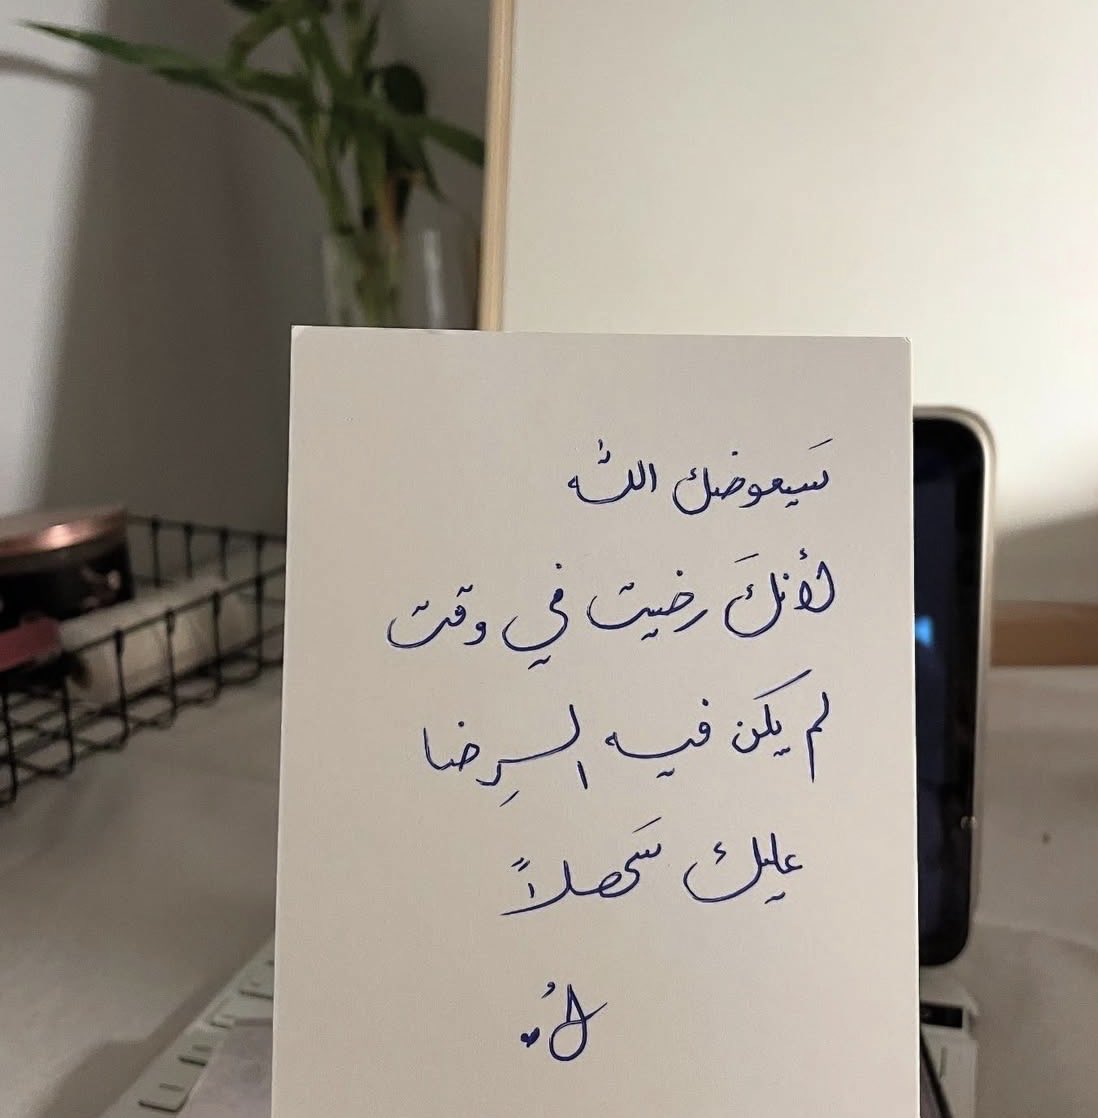 سَيعوضك الله
لأنكَ رضيت في وقت
لم يكن فيه الرِضا
عليك سَهلاً